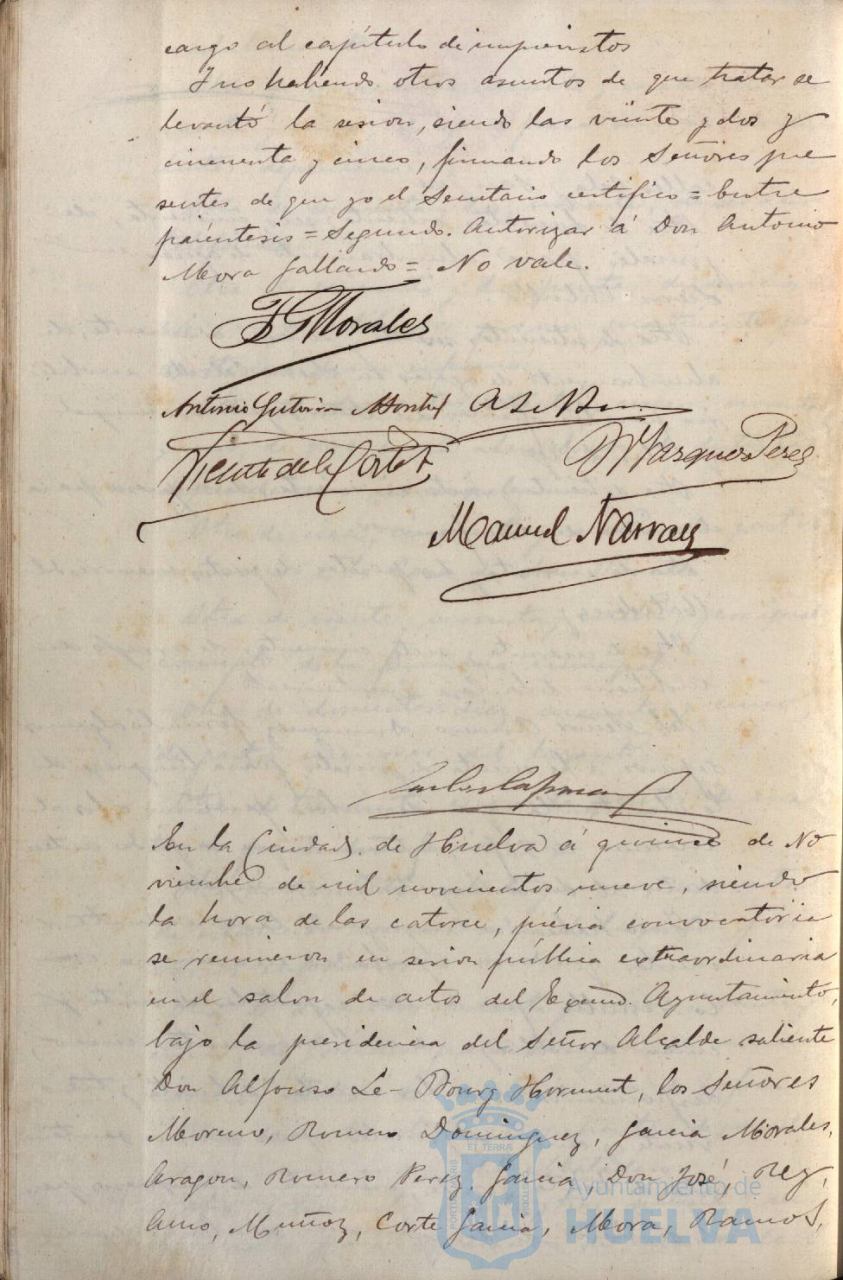 cargo al capítulo de imprevistos
Y no habiendo otros asuntos de que tratar se
levantó la sesion, siendo las veinte y dos y
cincuenta y cinco, firmando los Señores pre
sentes de que yo el Secretario certifico = Entre
paréntesis = Segundo. Autorizar á Don Antonio
Mora Gallardo = No vale.
F G Morales
Antonio Gutierrez
Vicente de la Corte
M Vazquez Perez
Manuel Narvaez
En la Ciudad de Huelva á quince de No
viembre de mil novecientos nueve, siendo
la hora de las catorce, prévia convocatoria
se reunieron en sesion pública extraordinaria
en el salon de actos del Excmo. Ayuntamiento,
bajo la presidencia del Señor Alcalde saliente
Don Alfonso Le-Bourg Horment, los Señores
Moreno, Romero Dominguez, Garcia Morales,
Aragon, Romero Perez, Garcia, Don José, Rey,
Amo, Muñoz, Corte Garcia, Mora, Ramos,
Ayuntamiento de
HUELVA